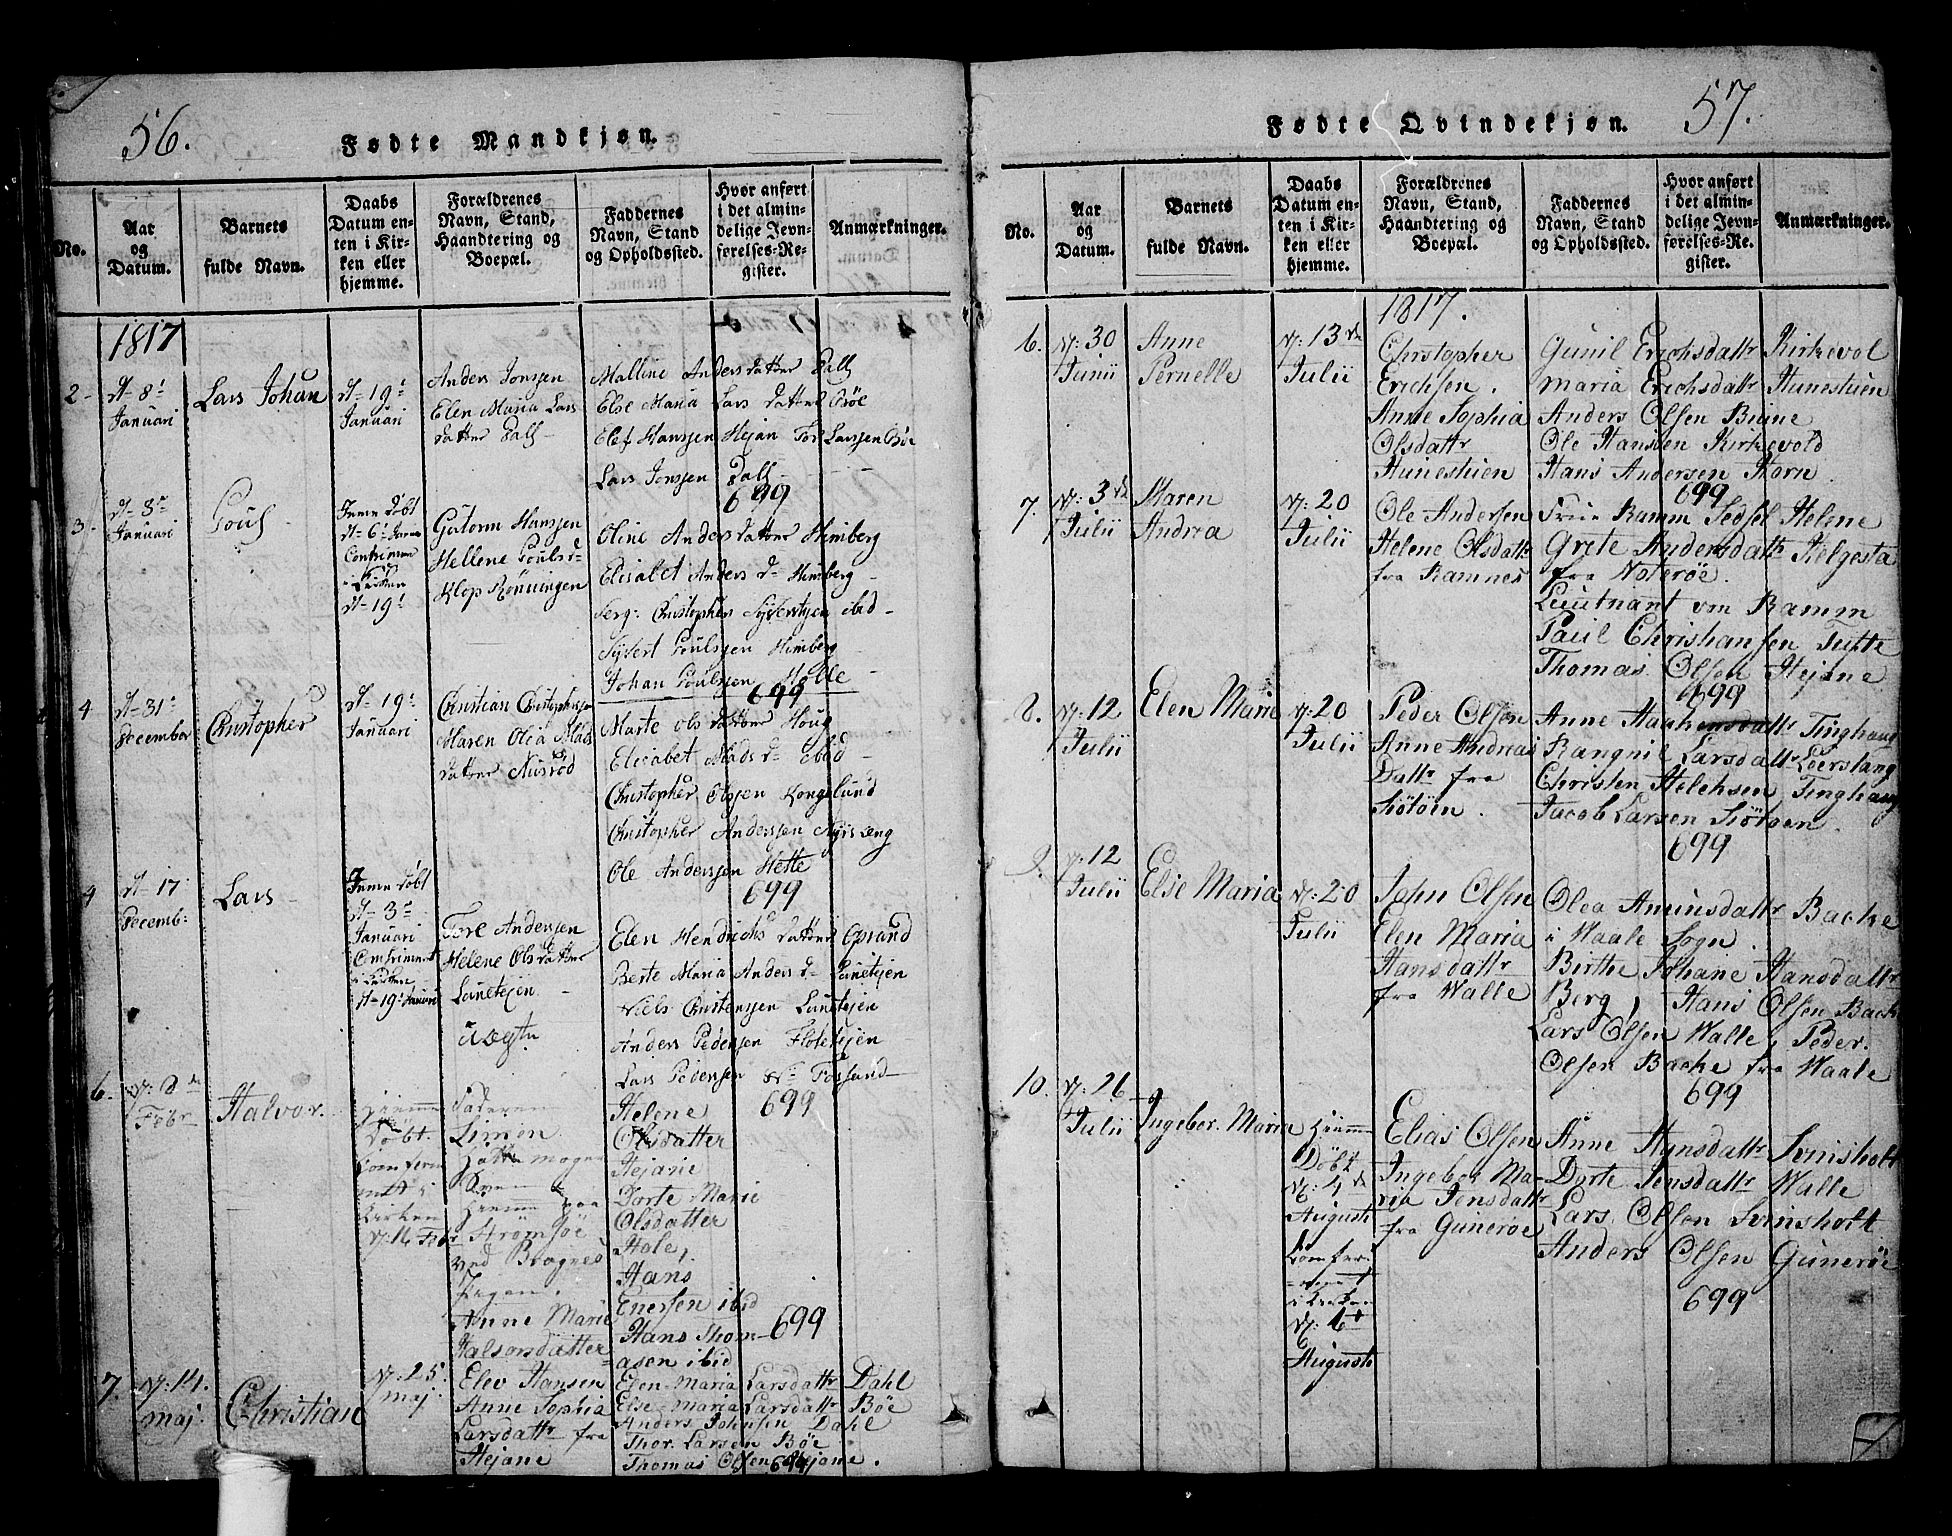 56.
Fødte Mandkjøn.
No.
Aar
og
Datum.
Barnets
fulde Navn.
Daabs
Datum en-
ten i Kir-
ken eller
hjemme.
Forældrenes
Navn, Stand,
Haandtering og
Boepæl.
Faddernes
Navn, Stand
og Opholdssted.
Hvor anført
i det almin-
delige Jevn-
førelses-Re-
gister.
Anmærkninger.
1817
2-
8
Januari
Lars Johan
19
Januari
Anders Jonssen
Elen Maria Lars
datter Dall
Malline Anders datter Dall
Else Maria Lars datter Bøe
Elef Hanssen Hejan Tor Larssen Bøe
Lars Jonssen Dall
699
3-
8
Januari
Poul
Hjeme døbt
6
i Kirken
19
Gutorm Hanssen
Hellene Poulsd
Klop Rønningen
Oline Anders datter Himberg
Elisabet Anders d Himberg
Serg: Christopher Syverssen ibid
Syvert Poulssen Himberg
Johan Poulssen Holle
699
4
31
December
Christopher
19
Januari
Christian Christophersen
Maren Olea Mads
datter Nusrød
Marte Ols datter Houg
Elisabet Mads d ibid
Christopher Olssen Kongslund
Christopher Anderssen
Ole Anderssen Hette
699
4
17
Decemb:
Lars
Hjeme døbt
3
Januari
i Kirken
19 Januari
Tore Anderssen
Helene Ols datter
Lunetejen
uægte
Elen Hendrichs datter Oprand
Berte Maria Anders d Lunetejen
Niels Christenssen Lunetejen
Anders Pederssen Flotetejen
Lars Pederssen Fossund
699
6.
8de
Febr
Halvor.
Hjemme
Døbt.
Comferm
i
Kirken
16 Febr
Faderen
Simen
Strømsøe
ved Bragnes
Pigen.
Anne Marie
Halvorsdatter
Helene
Olsdatter
Hejane
Dorte Marie
Olsdatter
Hole,
Hans
Enersen ibid
Hans Thom-
asen ibid
699
7.
14.
maj.
Christian
25.
maj.
Elev Hansen
Anne Sophia
Larsdattr fra
Hejane
Elen Maria Larsdattr Dahl
Else Maria Larsdattr Bøe
Anders Johnsen Dahl
Thor Larsen Bøe
Thomas Olsen Hejane.
699
57.
Fødte Qvindekjøn.
No.
Aar
og
Datum.
Barnets
fulde Navn.
Daabs
Datum en-
ten i Kir-
ken eller
hjemme.
Forældrenes
Navn, Stand,
Haandtering og
Boepæl.
Faddernes
Navn, Stand
og Opholdssted.
Hvor anført
i det almin-
delige Jevn-
førelses-Re-
gister.
Anmærkninger.
1817.
6.
30
Junii
Anne
Pernelle
13de
Julii
Christopher
Erichsen.
Anne Sophia
Olsdattr
Hunestuen
Gunil Erichsdattr Kirkevol
Maria Erichsdattr Hunestuen
Anders Olsen Brune
Ole Hansen Kirkevold
Hans Andersen Horn
699
7.
3de
Julii
Maren
Andrea
20
Julii
Ole Andersen
Helene Olsdattr
fra Ramnes
Frue Ramm Sedsel Helene
Grete Andersdattr Helgesta
fra Noterøe.
Lieutnant von Ramm
Paul Christiansen Tufte
Thomas Olsen Hejane
699
8.
12
Julii
Elen Marie
20
Julii
Peder Olsen
Anne Andreas
Dattr fra
Siøtøen.
Anne Haakensdattr Tinghaug
Rangnil Larsdattr Leerstang
Christen Helehsen Tinghaug
Jacob Larsen Siøtøen.
699
9.
12
Julii
Else Maria
20
Julii
John Olsen
Elen Maria
Hansdattr
fra Walle
Olea Amunsdattr Backe
i Waale Sogn.
Birthe Johane Hansdattr
Berg, Hans Olsen Back
Lars Olsen Walle, Peder
Olsen Backe fra Waale
699
10.
26
Julii
Ingebor. Maria
Hjemme
Døbt
4de
Augusti
Comfer
i Kirken
Augusti
Elias Olsen
Ingebor Ma-
ria Jensdattr
fra Gunerøe
Anne Hansdattr Svinsholt
Dorte Jensdattr Walle
Lars Olsen Svinsholt
Anders Olsen Gunerøe
699